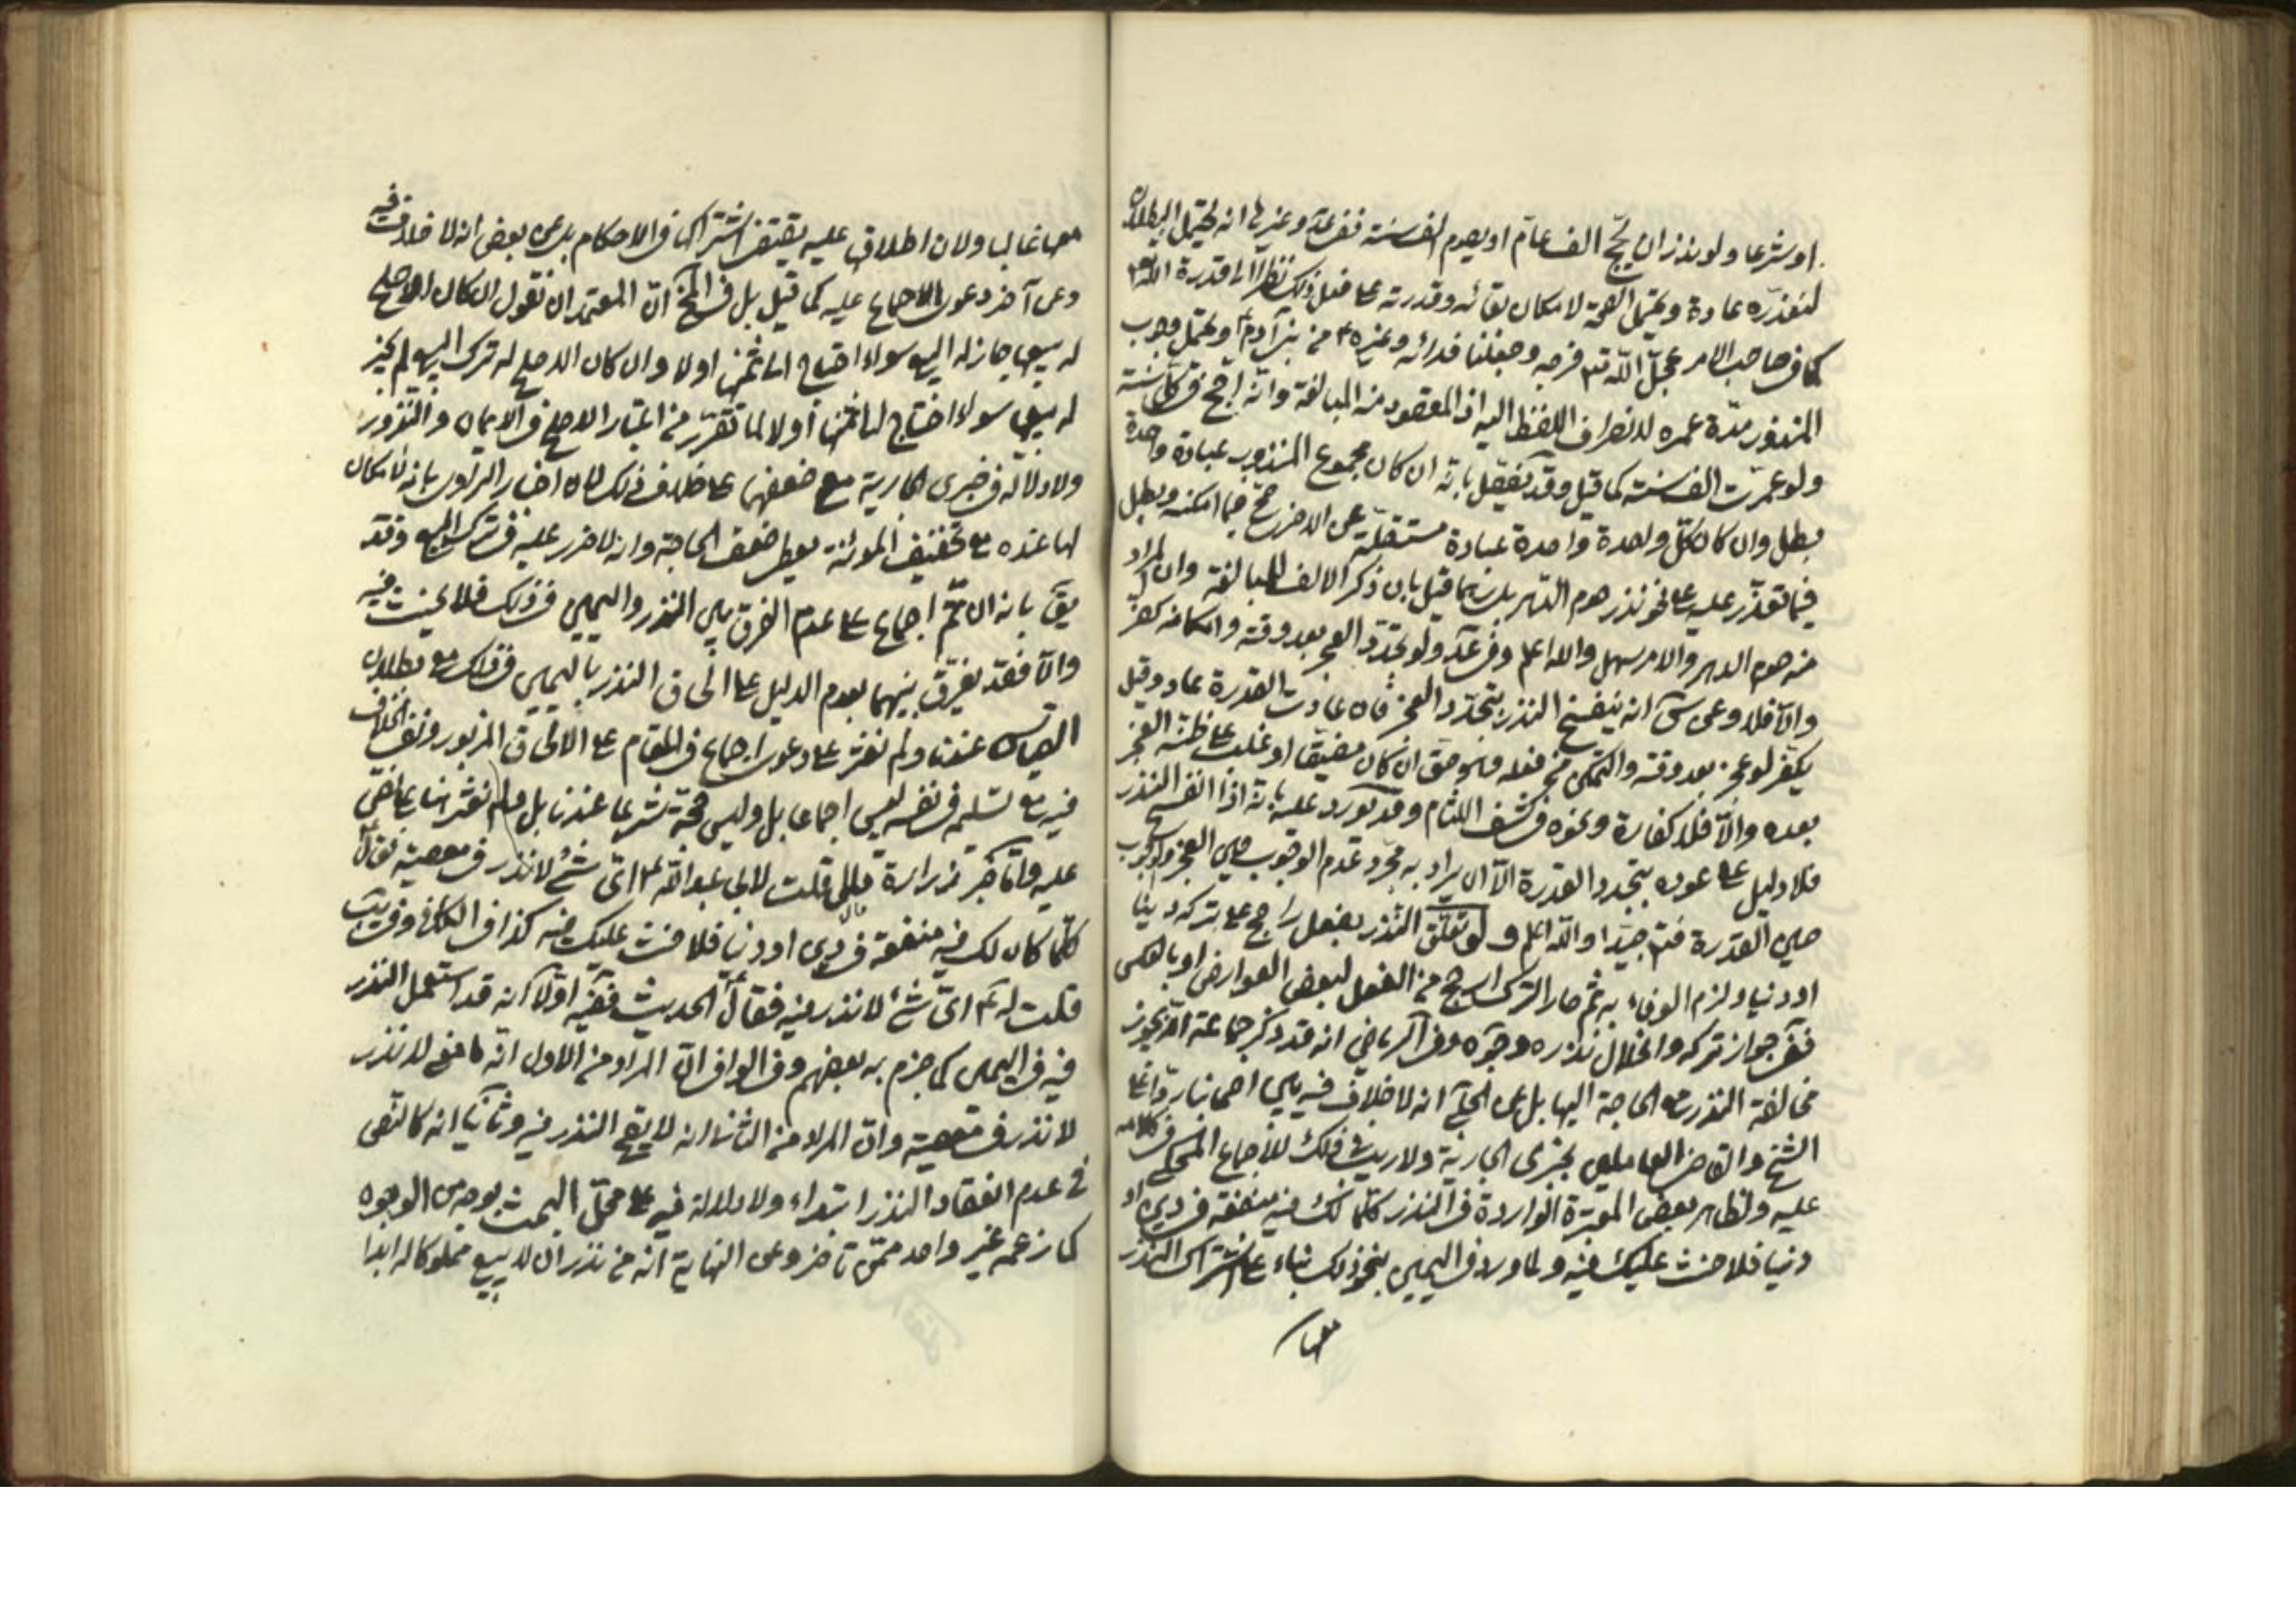 او شرعا ولو نذر ان يحج الف عام او يصوم الف سنة ففى عد وغيرها انه يحتمل البطلان
لتعذره عادة ويحتمل الصحة لامكان بقائه وقدرته على فعل ذلك نظرا الى قدرة الله تع
كما فى صاحب الامر عجل الله تع فرجه وجعلنا فدائه وغيره من بنى آدم ويحتمل وجوب
المنذور مدة عمره لانصراف اللفظ اليه اذ المقصود منه المبالغة وانه احج فى كل سنة
ولو عمرت الف سنة كما قيل وقد يفصل بانه ان كان مجموع المنذور عبادة واحدة
بطل وان كان كل واحدة واحدة عبادة مستقلة عن الاخر صح فيما امكنه وبطل
فيما تعذر عليه على نحو نذر صوم الدهر بل ربما قيل بان ذكر الالف للمبالغة وان المراد
منه صوم الدهر والامر سهل والله اعلم وفى عد ولو تجدد العجز بعد وقته وامكانه كفر
والا فلا وعن س انه ينفسخ النذر بتجدد العجز فان عادت القدرة عاد وقيل
يكفر لو عجز بعد وقته والتمكن من فعله وهو حق ان كان مضيقا او غلب على ظنه العجز
بعده والا فلا كفارة ونحوه فى كشف اللثام وقد يورد عليه بانه اذا انفسخ النذر
فلا دليل على عوده بتجدد القدرة الا ان يراد به مجرد عدم الوجوب حين العجز والوجوب
حين القدرة فتم جيدا والله اعلم ولو تعلق النذر بفعل راجح على تركه دينا
او دنيا ولزم الوفاء به ثم صار الترك ارجح من الفعل لبعض العوارض او بالعكس
ففى جواز تركه وانحلال نذره وجوه وفى الرياض انه قد ذكر جماعة انه يجوز
مخالفة النذر مع الحاجة اليها بل عن الحلى انه لا خلاف فيه بين اصحابنا ردا على
الشيخ والقاضى العاملين بخبرى الجارية ولا ريب فى ذلك للاجماع المحكى فى كلامه
عليه ولظاهر بعض المعتبرة الواردة فى النذر كلما لك فيه منفعة فى دين او
دنيا فلا حنث عليك فيه ولما ورد فى اليمين بنحو ذلك بناء على اشتراك النذر
معها
معها غالبا ولان اطلاق عليه يقتضى اشتراكها فى الاحكام بل عن بعض انه لا خلاف فيه
وعن آخر دعوى الاجماع عليه كما قيل بل فى المخ ان المعتمد ان نقول ان كان الاصلح
له بيعها جاز له البيع سواء احتاج الى ثمنها او لا وان كان الاصلح له ترك البيع لم يجز
له بيعها سواء احتاج الى ثمنها او لا لما تقرر من اعتبار الاصلح فى الايمان والنذور
ولا دلالة فى خبرى الجارية مع ضعفهما على خلاف ذلك لان اخبار الراوى بانه لا مكان
لها عنده مع تخفيف المؤنة يعطى ضعف الحاجة وانه لا ضرر عليه فى ترك البيع وقد
يق بانه ان تم اجماع على عدم الفرق بين النذر واليمين فى ذلك فلا بحث فيه
والا فقد يفرق بينهما بعدم الدليل على الحاق النذر باليمين فى ذلك مع بطلان
القياس عندنا ولم نعثر على دعوى اجماع فى المقام على الالحاق المزبور ونفى الخلاف
فيه مع تسليمه فى نفسه ليس اجماعا بل وليس حجة شرعا عندنا بل ولم نعثر هنا على نص
عليه واما خبر زرارة قال قلت لابى عبد الله ع اى شئ لا نذر فى معصية فقال
كلما كان لك فيه منفعة فى دين او دنيا فلا حنث عليك فيه كذا فى الكافى وفى يب
قلت له ع اى شئ لا نذر فيه فقال الحديث ففيه اولا انه قد استعمل النذر
فيه فى اليمين كما جزم به بعضهم وفى الوافى ان المراد من الاول انه ما معنى لا نذر
لا نذر فى معصية وان المراد من الثانى انه لا يقع النذر فيه وثانيا انه كالنص
فى عدم انعقاد النذر ابتداء ولا دلالة فيه على محل البحث بوجه من الوجوه
كما زعمه غير واحد ممن تاخر وعن النهاية انه من نذر ان لا يبيع مملوكا له ابدا